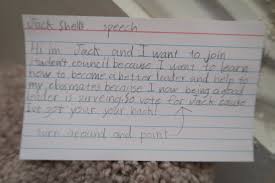 Jack Shelt speech
Hi Im Jack and I want to join
student council because I want to learn
how to become a better leader and help to
my classmates because I now being a good
leader is zirveing. so vote for Jack cause
I've got your your back!
turn around and point